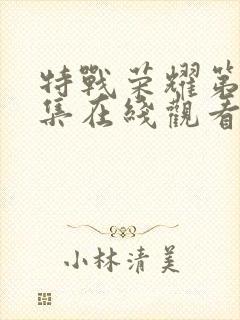 特戰荣耀第
集在綫觀看
小林清美